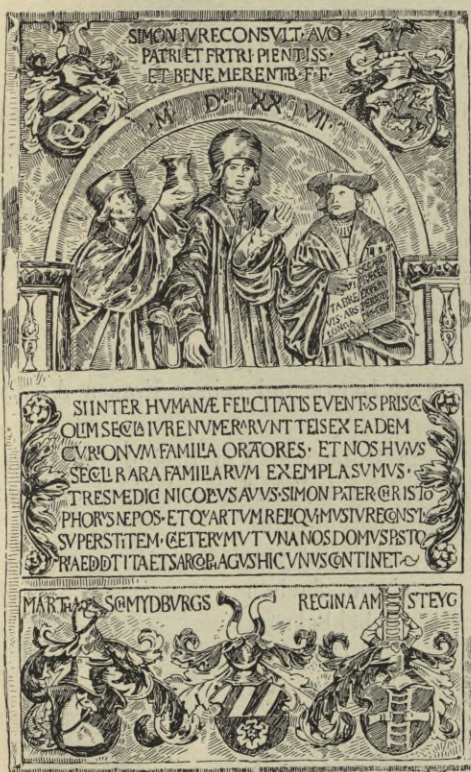 SIMON IVRECONSVLT · AVO ·
PATRI ET FRTRI · PIENTISS ·
ET BENE MERENTB · F · F ·
M · D · XX VII
OCCASIO
QVI PRÆCEPS
TA BRE EXPERI
VIS · ARS
LONGA
SI INTER HVMANÆ FELICITATIS EVENTS PRISCA
OLIM SECLA IVRE NVMERARVNT TEIS EX EADEM
CVRIONVM FAMILIA ORATORES · ET NOS HVIVS
SECLI RARA FAMILIARVM EXEMPLA SVMVS ·
TRES MEDICI NICOLVS AVVS · SIMON PATER · CHRISTO
PHORVS NEPOS · ET QVARTVM RELIQVIMVS IVRECONSVL
SVPERSTITEM · CÆTERVM VT VNA NOS DOMVS PSTO
RIA EDDT ITA ET SARCOPAGVS HIC VNVS CONTINET
MARTHA SCHMYDBVRGS REGINA AM STEYG